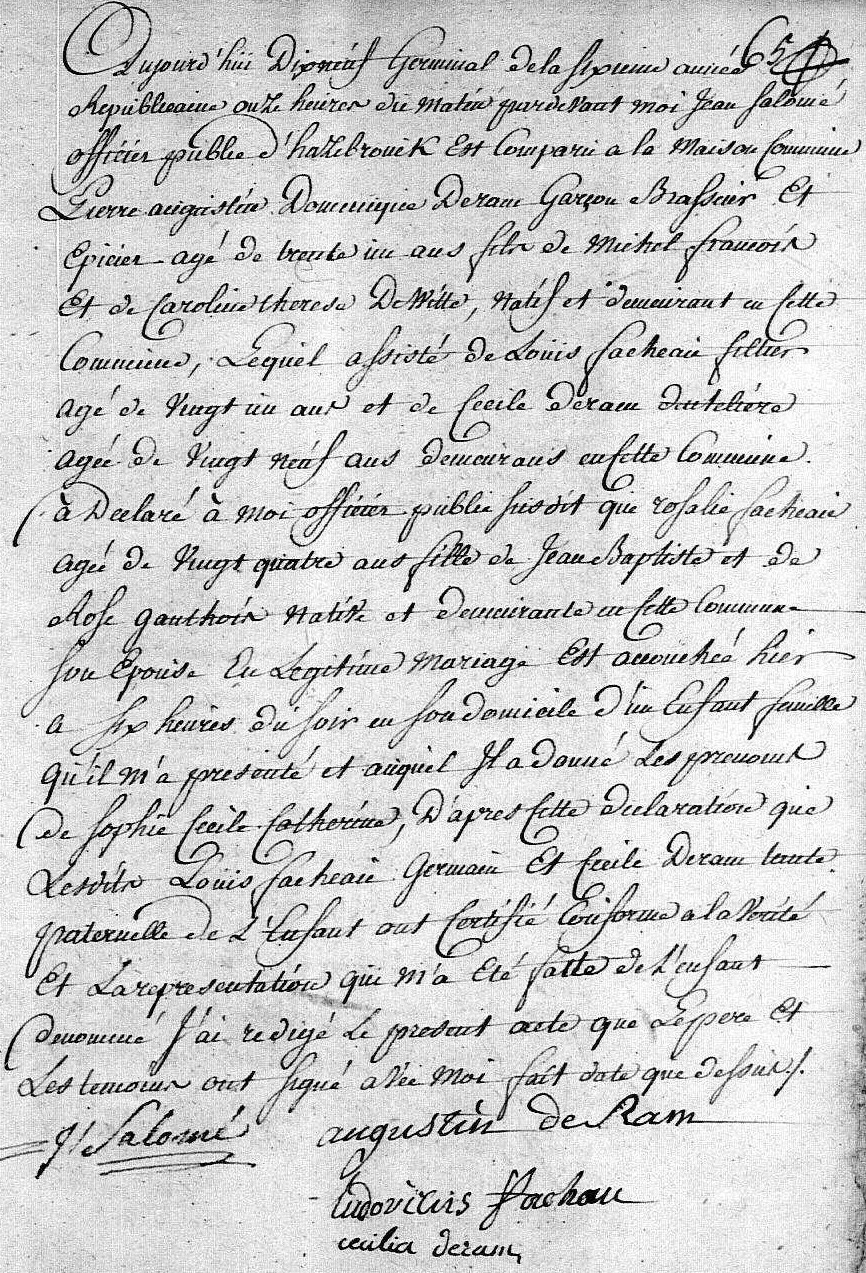 Aujourd'hui Dixneuf Germinal de la sixieme année 65
Republicaine onze heures du matin pardevant moi Jean Salomé
officier public d'hazebrouck Est Comparu a la Maison Commune
Pierre augustin Dominique Deram Garçon Brasseur Et
Epicier agé de trente un ans fils de Michel francois
Et de Caroline therese DeWitte, Natif et demeurant en Cette
Commune, Lequel assisté de Louis facheau filtier
agé de Vingt un ans et de Cecile deram dentelière
agée de Vingt Neuf ans demeurans en Cette Commune.
à Declaré à moi officier public susdit que rosalie facheau
agée de Vingt quatre ans fille de Jean Baptiste et de
Rose Gauthoir Native et demeurante en Cette Commune
son Epouse En Legitime Mariage Est accouchée hier
a six heures du soir en son domicile d'un Enfant femelle
qu'il m'a presenté et auquel Il a donné Les prenoms
de Sophie Cecile Catherine, D'apres Cette declaration que
Lesdits Louis facheau Germain Et Cecile Deram tante
paternelle de L'Enfant ont Certifié Conforme a la Verité
Et La representation qui M'a Eté faite de L'enfant
denommé J'ai redigé Le present acte que Le pere Et
Les temoins ont signé avec Moi fait date que dessus /.
J Salomé augustin de Ram
Ludovicus fachau
cecilia deram